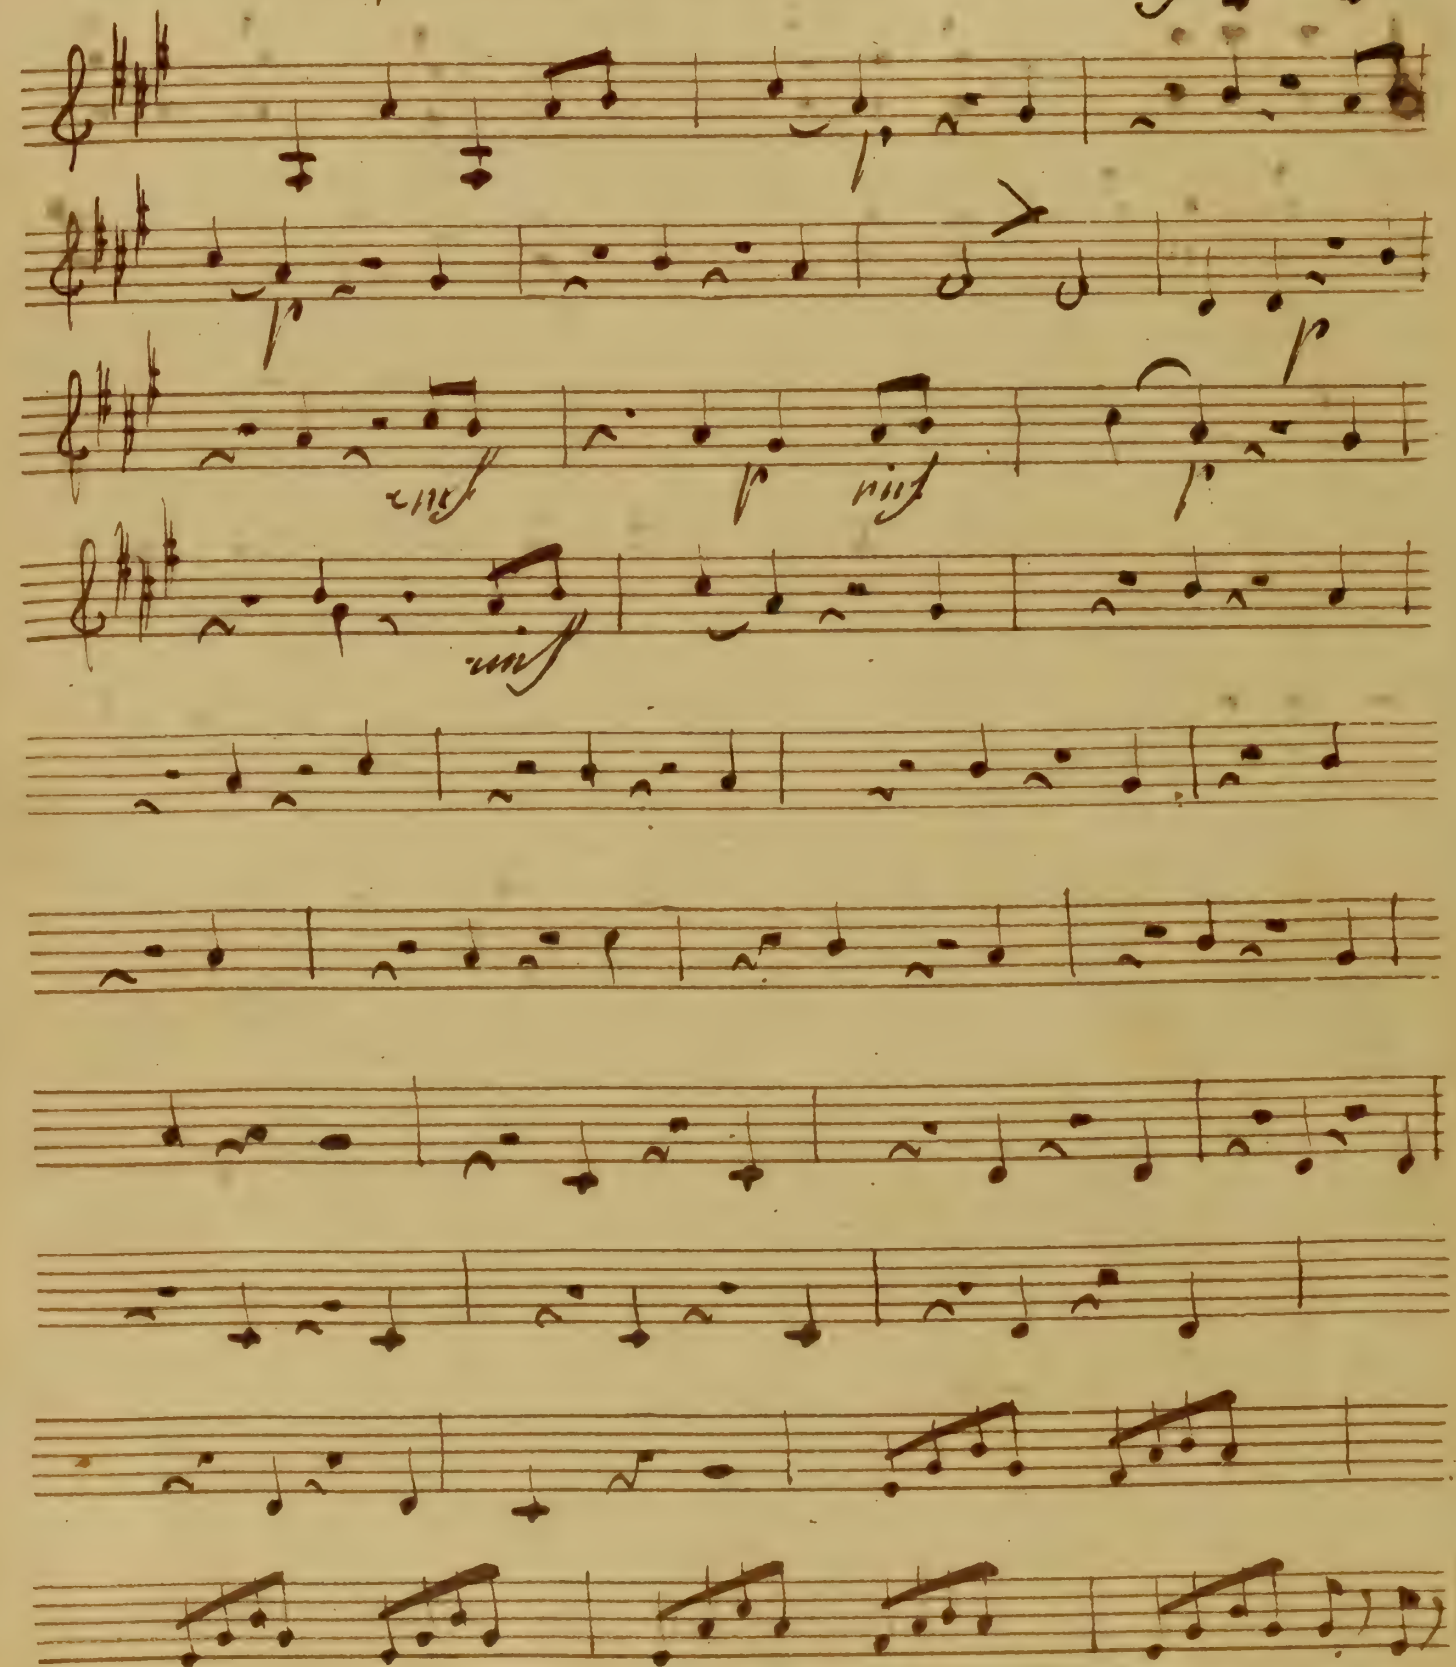 p
p p
rinf p rinf p
rinf